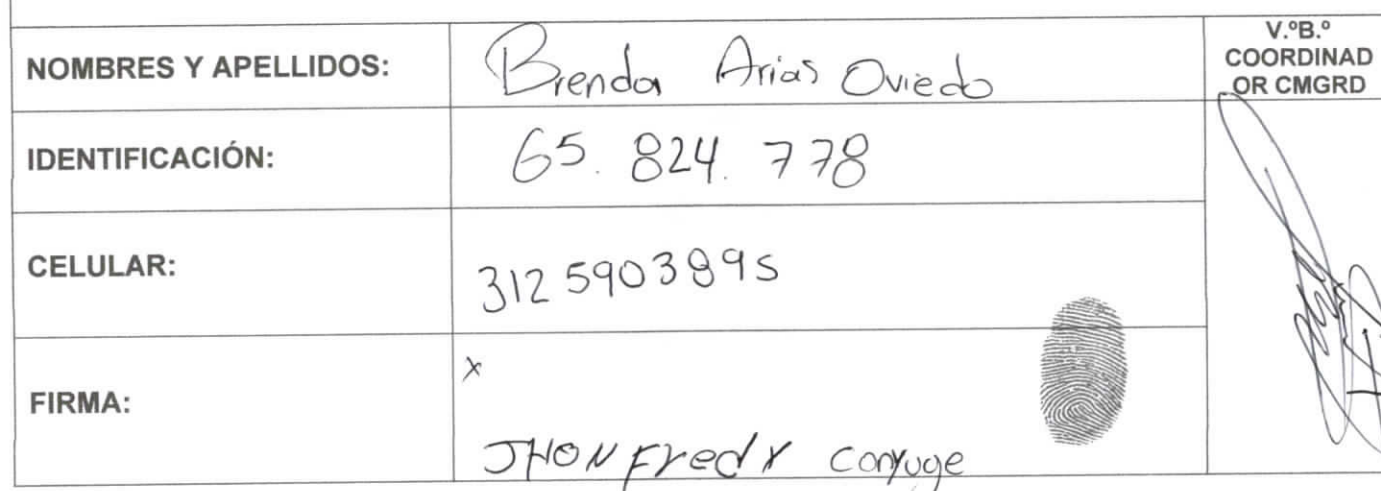 NOMBRES Y APELLIDOS: Brenda Arias Oviedo
V.ºB.º
COORDINAD
OR CMGRD
IDENTIFICACIÓN: 65.824.778
CELULAR: 312 5903895
FIRMA: x
JHON FredY conyuge